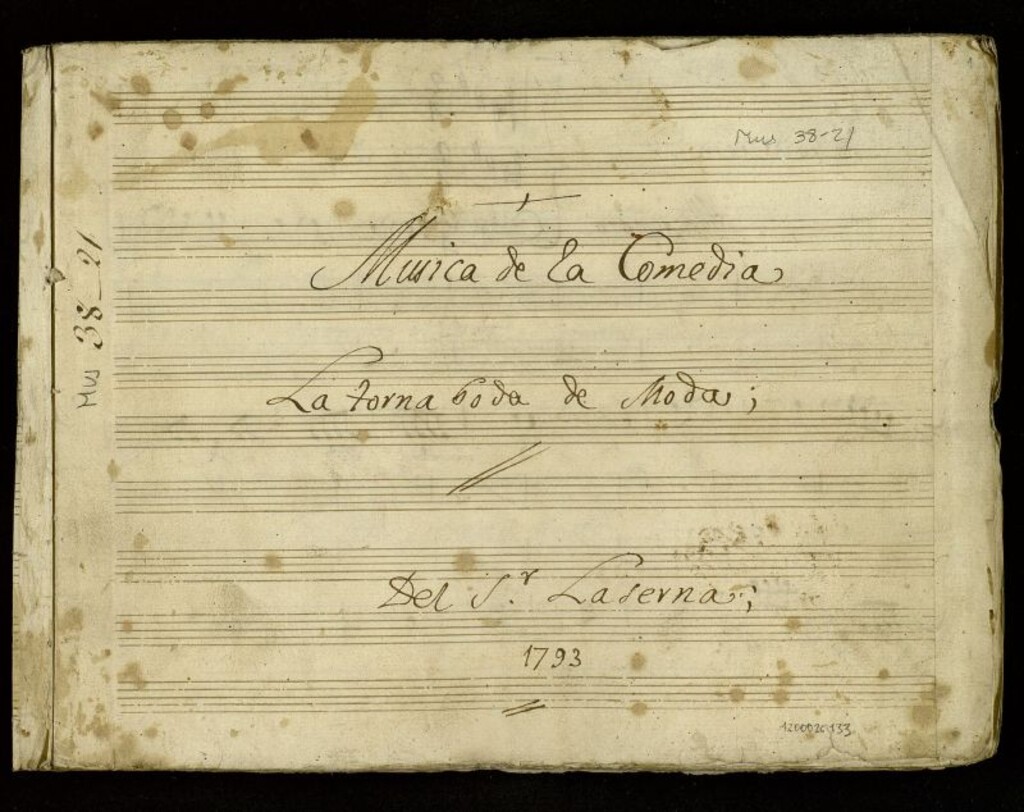 Mus 38-21
Musica de la Comedia
La torna boda de Moda;
Del S.r Laserna;
1793
1200020133
Mus 38-21